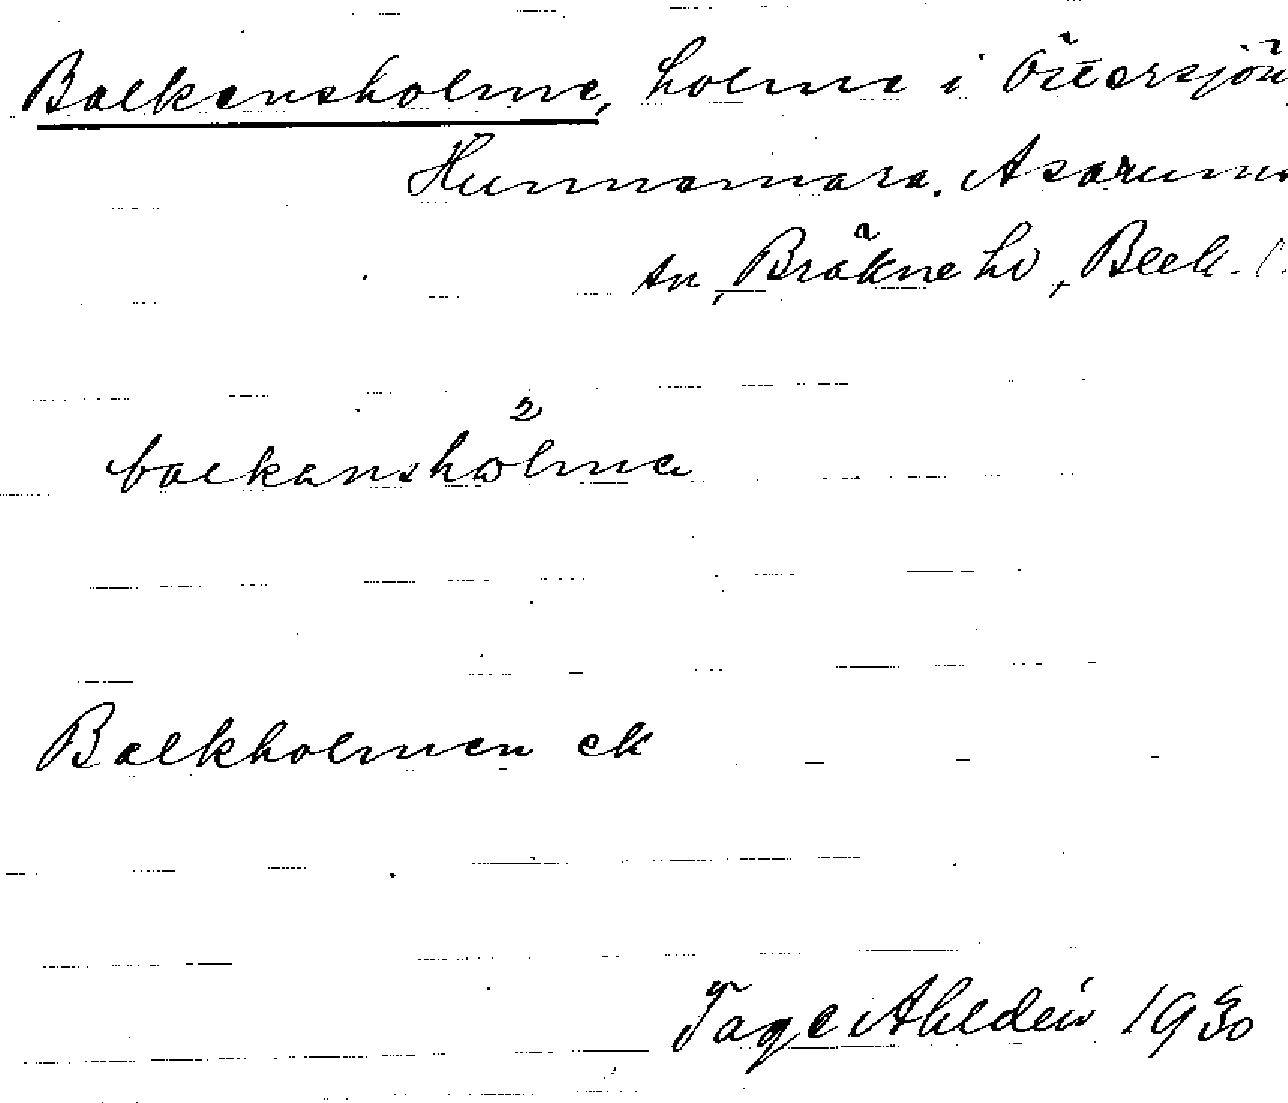 Balkansholme, holme i Östersjön,
Hunnamara. Asarums
sn, Bräkne hd, Blek. (
balkanshölma
2
Balkholmen ek
Tage Ahldén 1930